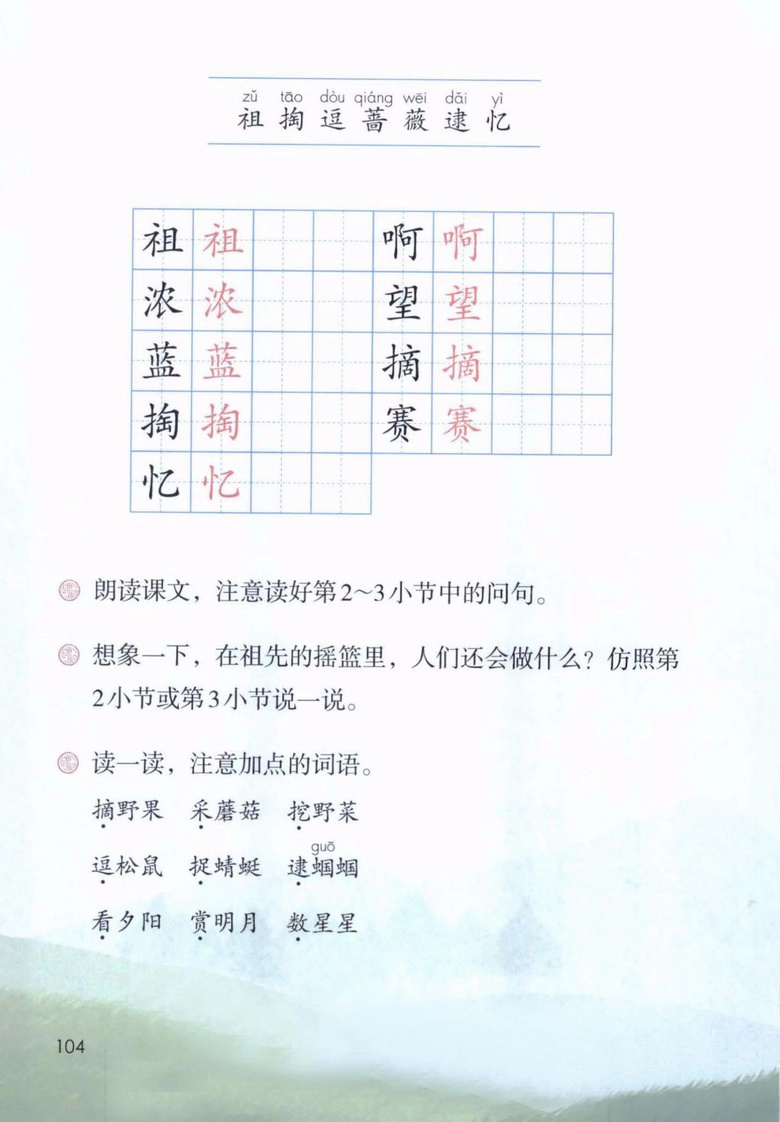 zǔ tāo dòu qiáng wēi dǎi yì
祖 掏 逗 蔷 薇 逮 忆
祖 祖 啊 啊
浓 浓 望 望
蓝 蓝 摘 摘
掏 掏 赛 赛
忆 忆
朗读课文，注意读好第2~3小节中的问句。
想象一下，在祖先的摇篮里，人们还会做什么？仿照第
2小节或第3小节说一说。
读一读，注意加点的词语。
摘野果 采蘑菇 挖野菜
guō
逗松鼠 捉蜻蜓 逮蝈蝈
看夕阳 赏明月 数星星
104